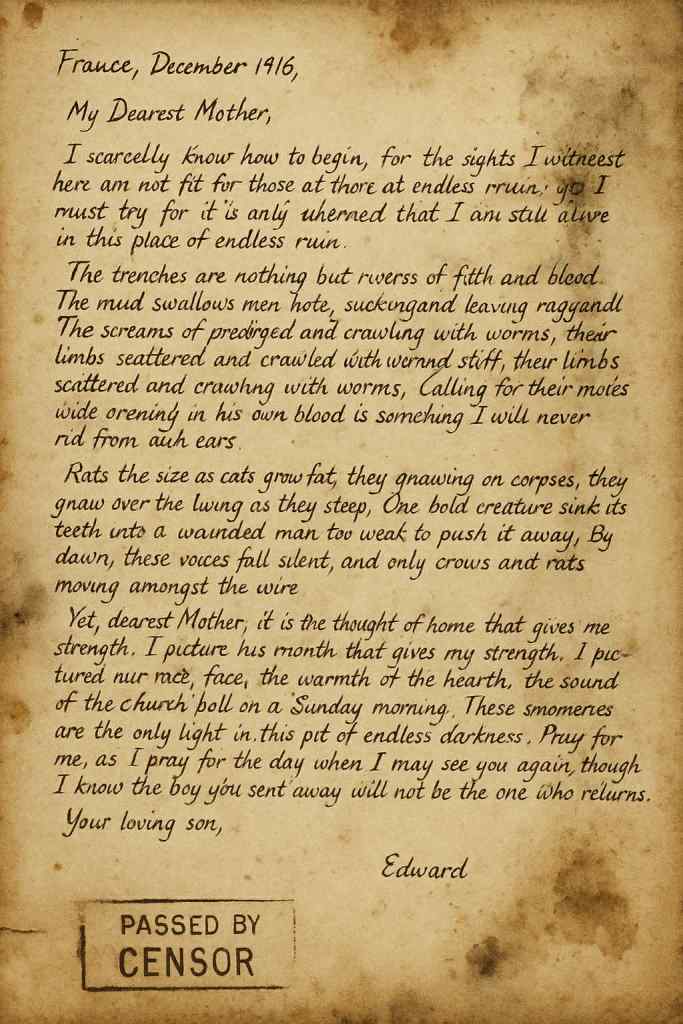 France, December 1916,
My Dearest Mother,
I scarcelly know how to begin, for the sights I witneest
here am not fit for those at thore at endless rruin; I
must try for it is anly uherned that I am still alive
in this place of endless ruin.
The trenches are nothing but rwerss of filth and bleod.
The mud swallows men hote, suckingand leaving raggandl
The screams of predirged and crawling with worms, their
limbs seattered and crawled with wernnd stiff, their limbs
scattered and crawhng with worms, Calling for their moies
wide orening in his own blood is something I will never
rid from auh ears.
Rats the size as cats grow fat, they gnawing on corpses, they
gnaw over the lwng as they steep, One bold creature sink its
teeth into a wainded man too weak to push it away, By
dawn, these voices fall silent, and only crows and rats
moving amongst the wire
Yet, dearest Mother, it is the thought of home that gives me
strength. I picture his month that gives my strength. I pic-
tured nur race, face, the warmth of the hearth, the sound
of the church boll on a Sunday morning. These smomeries
are the only light in.this pit of endless darkness. Pray for
me, as I pray for the day when I may see you again, though
I know the boy you sent away will not be the one who relurns.
Your loving son,
Edward
PASSED BY
CENSOR